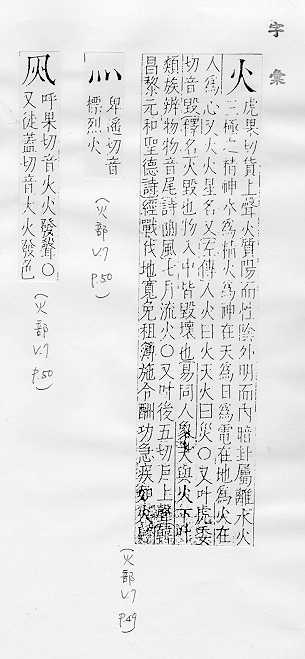 字彙
火 虎果切貨上聲火質陽而性陰外明而內暗卦屬離水火
三極之精神水爲精火爲神在天爲日爲電在地爲火在
人爲心又火火星名又左傳人火曰火天火曰災〇又叶虎委
切音毀釋名火毀也物入中皆毀壞也易同人象天與火下叶
類族辨物物音尾詩豳風七月流火〇又叶後五切戶上聲韓
昌黎元和聖德詩經戰伐地寬免租簿施令酬功急疾如火
(火部 V.7 P.49)
灬 卑遙切音
標烈火
(火部 V.7 P.50)
呼果切音火火發聲〇
又徒蓋切音大火發色
(火部 V.7 P.50)